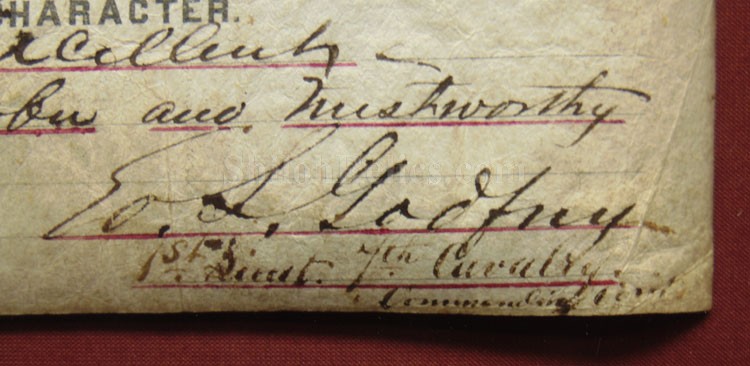 CHARACTER.
xcellent –
ober and Trustworthy
E. S. Godfrey
1st Lieut. 7th Cavalry.
Commanding